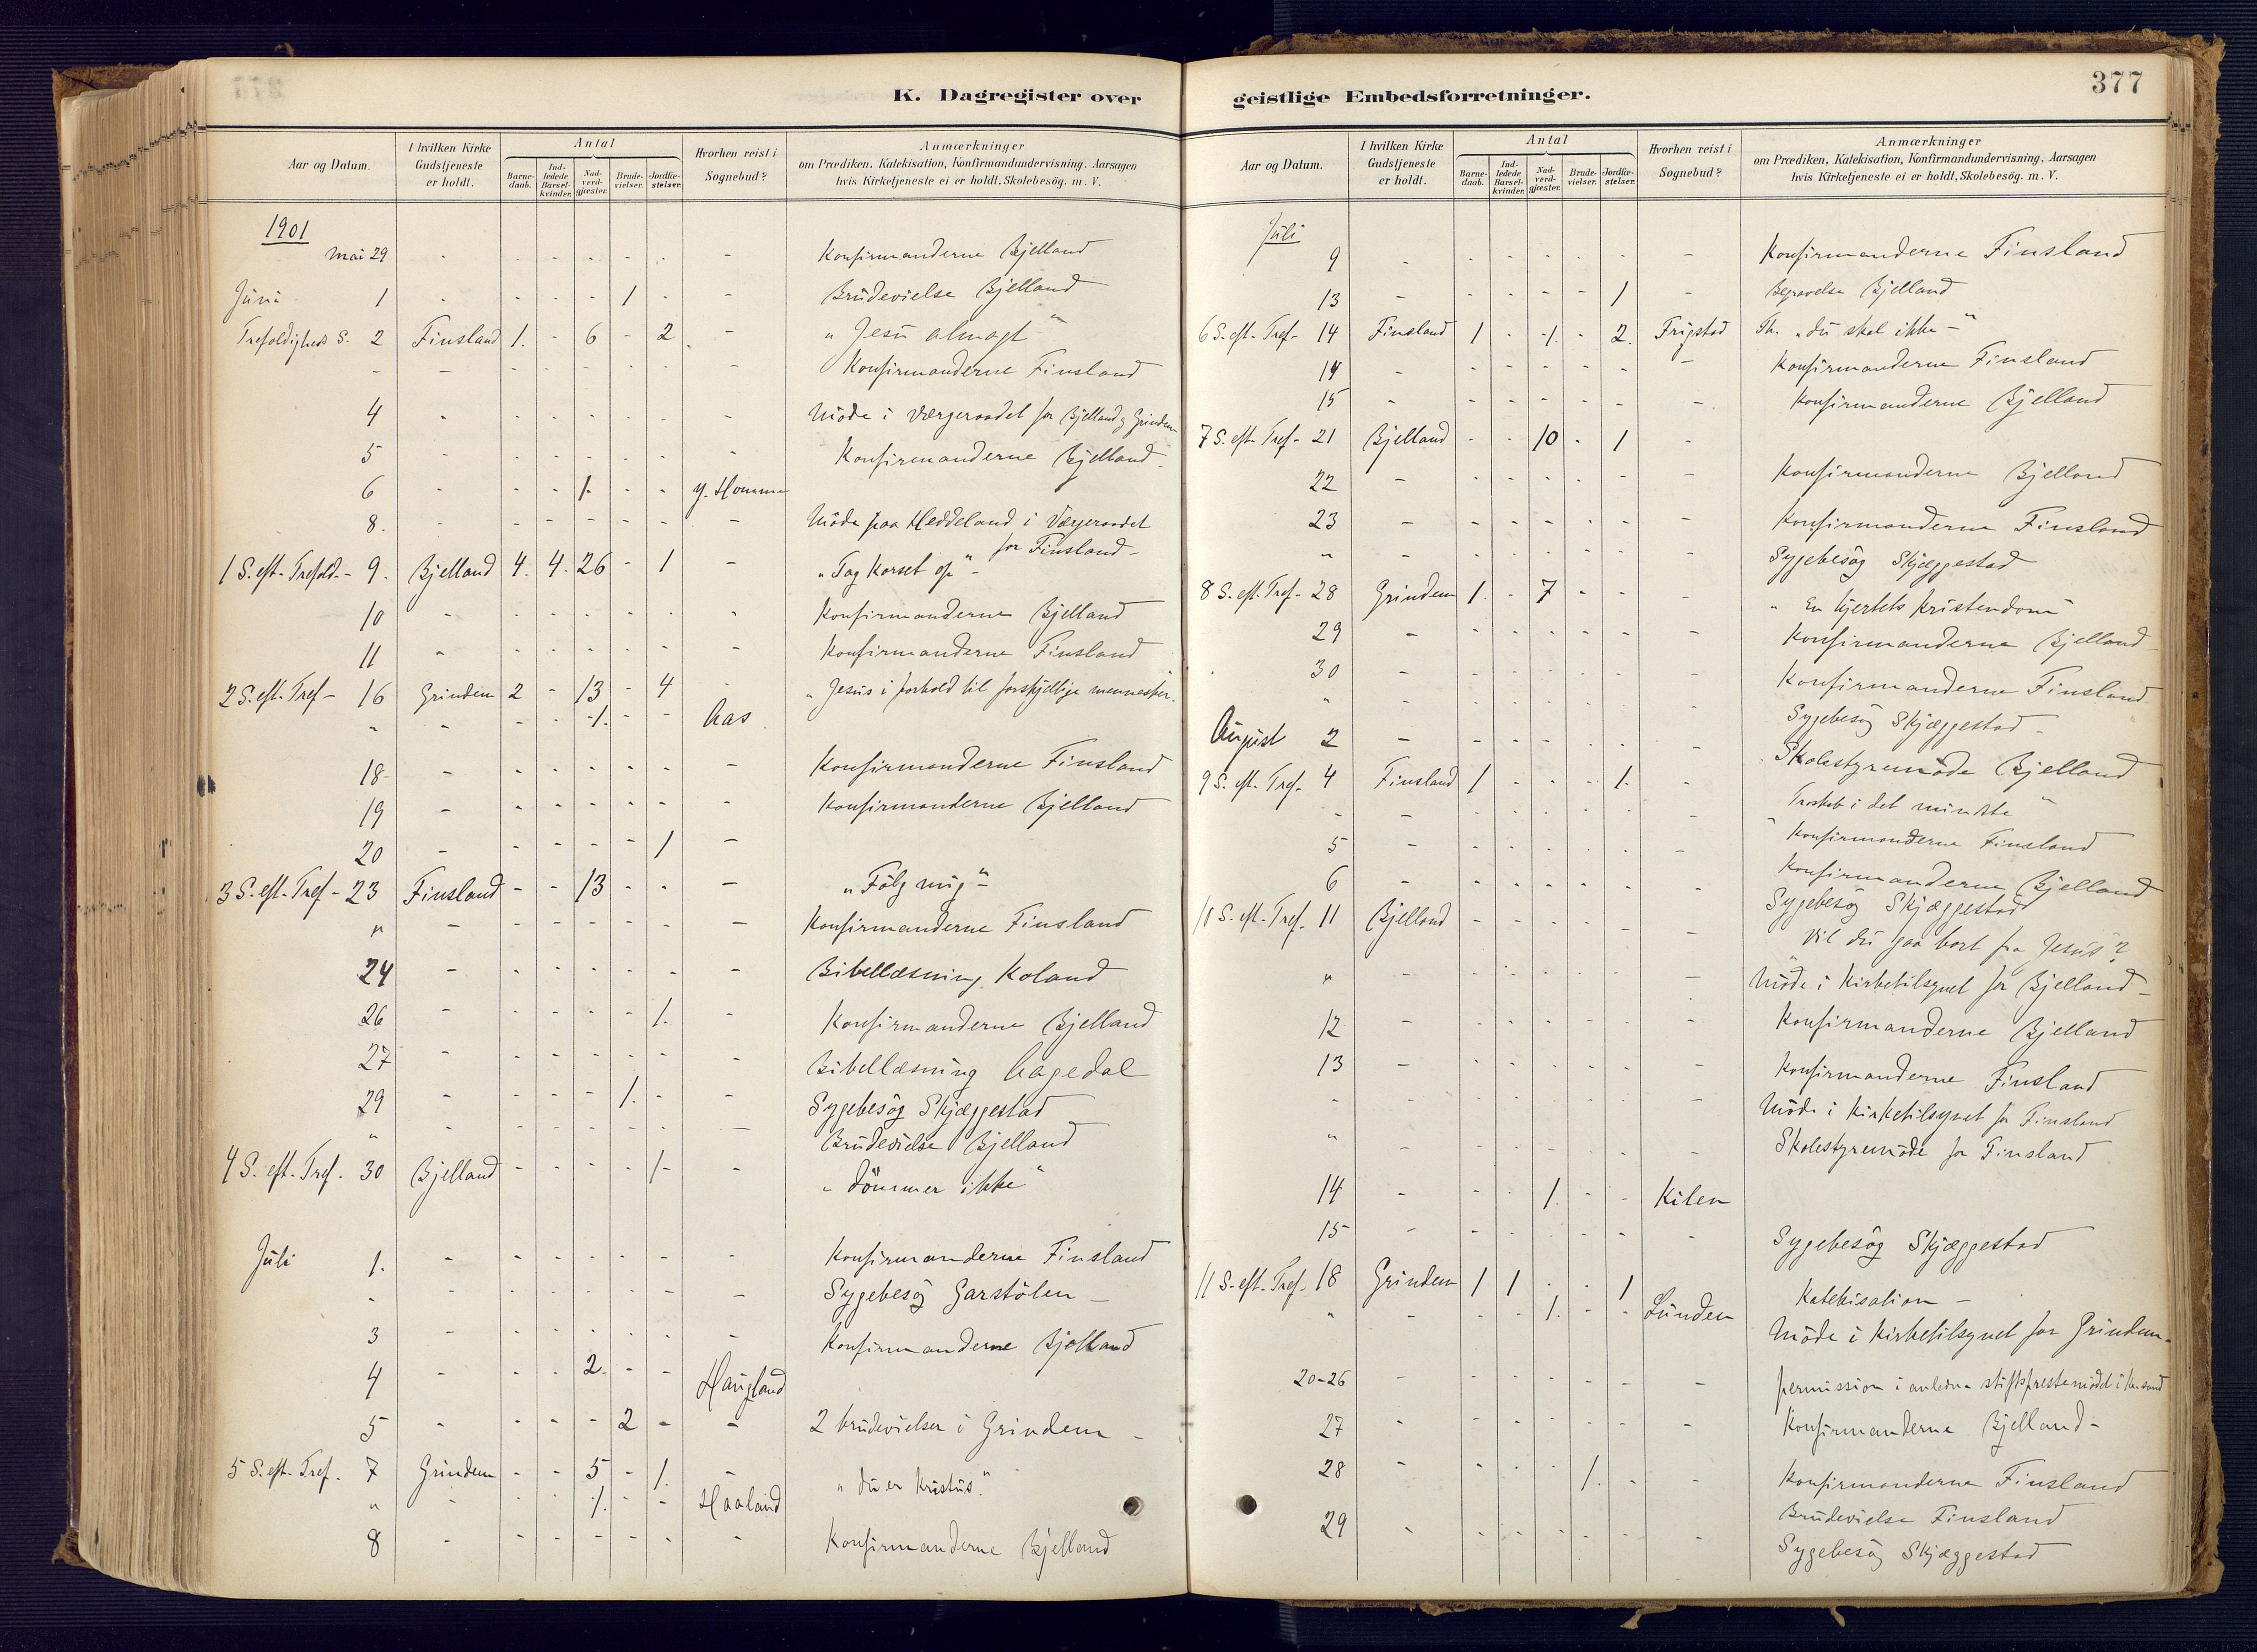 K. Dagregister over
Aar og Datum.
I hvilken Kirke Gudstjeneste er holdt.
Antal
Barnedaab.
Indledede Barselkvinder.
Nadverdgjester.
Brudevielser.
Jordfæstelser.
Hvorhen reist i Sognebud?
Anmærkninger
om Prædiken, Katekisation, Konfirmandundervisning, Aarsagen
hvis Kirketjeneste ei er holdt, Skolebesög. m. V.
1901
Mai 29 - - - - - - - Konfirmanderne Bjelland
Juni 1 - - - - 1 - - Brudevielse Bjelland
Trefoldigheds S. 2 Finsland 1. - 6 - 2 - „Jesu almagt"
- - - - - - - - Konfirmanderne Finsland
4 - - - - - - - Möde i Værgeraadet for Bjelland og Grindem
5 - - - - - - - Konfirmanderne Bjelland
6 - - - 1. - - y. Homme
8. - - - - - - - Möde paa Heddeland i Værgeraadet
for Finsland -
1 S. eft. Trefold. - 9. Bjelland 4. 4. 26 - 1 - „Tag korset op"
10 - - - - - - - Konfirmanderne Bjelland
11 - - - - - - - Konfirmanderne Finsland
2 S. eft. Tref - 16 Grindem 2 - 13 - 4 - „Jesus i forhold til forskjellige mennesker
" - - - 1. - - Aas
18 - - - - - - - Konfirmanderne Finsland
19 - - - - - - - Konfirmanderne Bjelland
20 - - - - - 1 -
3 S. eft. Tref - 23 Finsland - - 13 - - - „Fölg mig"
" - - - - - - - Konfirmanderne Finsland
24 - - - - - - - Bibellæsning Koland
26 - - - - - 1. - Konfirmanderne Bjelland
27 - - - - - - - Bibellæsning Aagedal
29 - - - - 1. - - Sygebesög Skjæggestad
" - - - - - - - Brudevielse Bjelland
4 S. eft. Tref. 30 Bjelland - - - - 1 - „dömmer ikke"
Juli 1. - - - - - - - Konfirmanderne Finsland
" - - - - - - - Sygebesög Garstölen -
3 - - - - - - - Konfirmanderne Bjelland
4 - - - 2. - - Haugland
5 - - - - 2 - - 2 brudevielser i Grindem -
5 S. eft. Tref. 7 Grindem - - 5 - 1. - „du er Kristus."
" - - - 1. - - Haaland
8 - - - - - - - Konfirmanderne Bjelland
geistlige Embedsforretninger.
377
Aar og Datum.
I hvilken Kirke Gudstjeneste er holdt.
Antal
Barnedaab.
Indledede Barselkvinder.
Nadverdgjester.
Brudevielser.
Jordfæstelser.
Hvorhen reist i Sognebud?
Anmærkninger
om Prædiken, Katekisation, Konfirmandundervisning, Aarsagen
hvis Kirketjeneste ei er holdt, Skolebesög. m. V.
Juli
9 - - - - - - - Konfirmanderne Finsland
13 - - - - - 1 - Begravelse Bjelland
6 S. eft. Tref - 14 Finsland 1 - 1. - 2. Frigstad Th. „du skal ikke -"
14 - - - - - - - Konfirmanderne Finsland
15 - - - - - - - Konfirmanderne Bjelland
7 S. eft. Tref - 21 Bjelland - - 10 - 1 -
22 - - - - - - - Konfirmanderne Bjelland
23 - - - - - - - Konfirmanderne Finsland
" - - - - - - - Sygebesög Skjæggestad
8 S. eft. Tref - 28 Grindem 1. - 7 - - - „En hjertets kristendom"
29 - - - - - - - Konfirmanderne Bjelland
30 - - - - - - - Konfirmanderne Finsland
" - - - - - - - Sygebesög Skjæggestad -
August 2 - - - - - - - Skolestyremöde Bjelland
9 S. eft. Tref. 4 Finsland 1 - - - 1. - Troskab i det mindste "
- - - - - - - - Konfirmanderne Finsland
5 - - - - - - - Konfirmanderne Bjelland
6 - - - - - - - Sygebesög Skjæggestad
10 S. eft. Tref. 11 Bjelland - - - - - - Vil du gaa bort fra Jesus?
" - - - - - - - Möde i Kirketilsynet for Bjelland -
12 - - - - - - - Konfirmanderne Bjelland
13 - - - - - - - Konfirmanderne Finsland
" - - - - - - - Möde i Kirketilsynet for Finsland
" - - - - - - - Skolestyremöde for Finsland
14 - - - 1. - - Kilen
15 - - - - - - - Sygebesög Skjæggestad
11 S. eft. Tref. 18 Grindem 1 1 - - 1 Katekisation -
" - - - 1. - - Lunden Möde i Kirketilsynet for Grindem -
20-26 - - - - - - - permission i anledn. stiftsprestemödet i Kr.sand
27 - - - - - - - Konfirmanderne Bjelland -
28 - - - - 1. - - Konfirmanderne Finsland
Brudevielse Finsland
29 - - - - - - - Sygebesög Skjæggestad